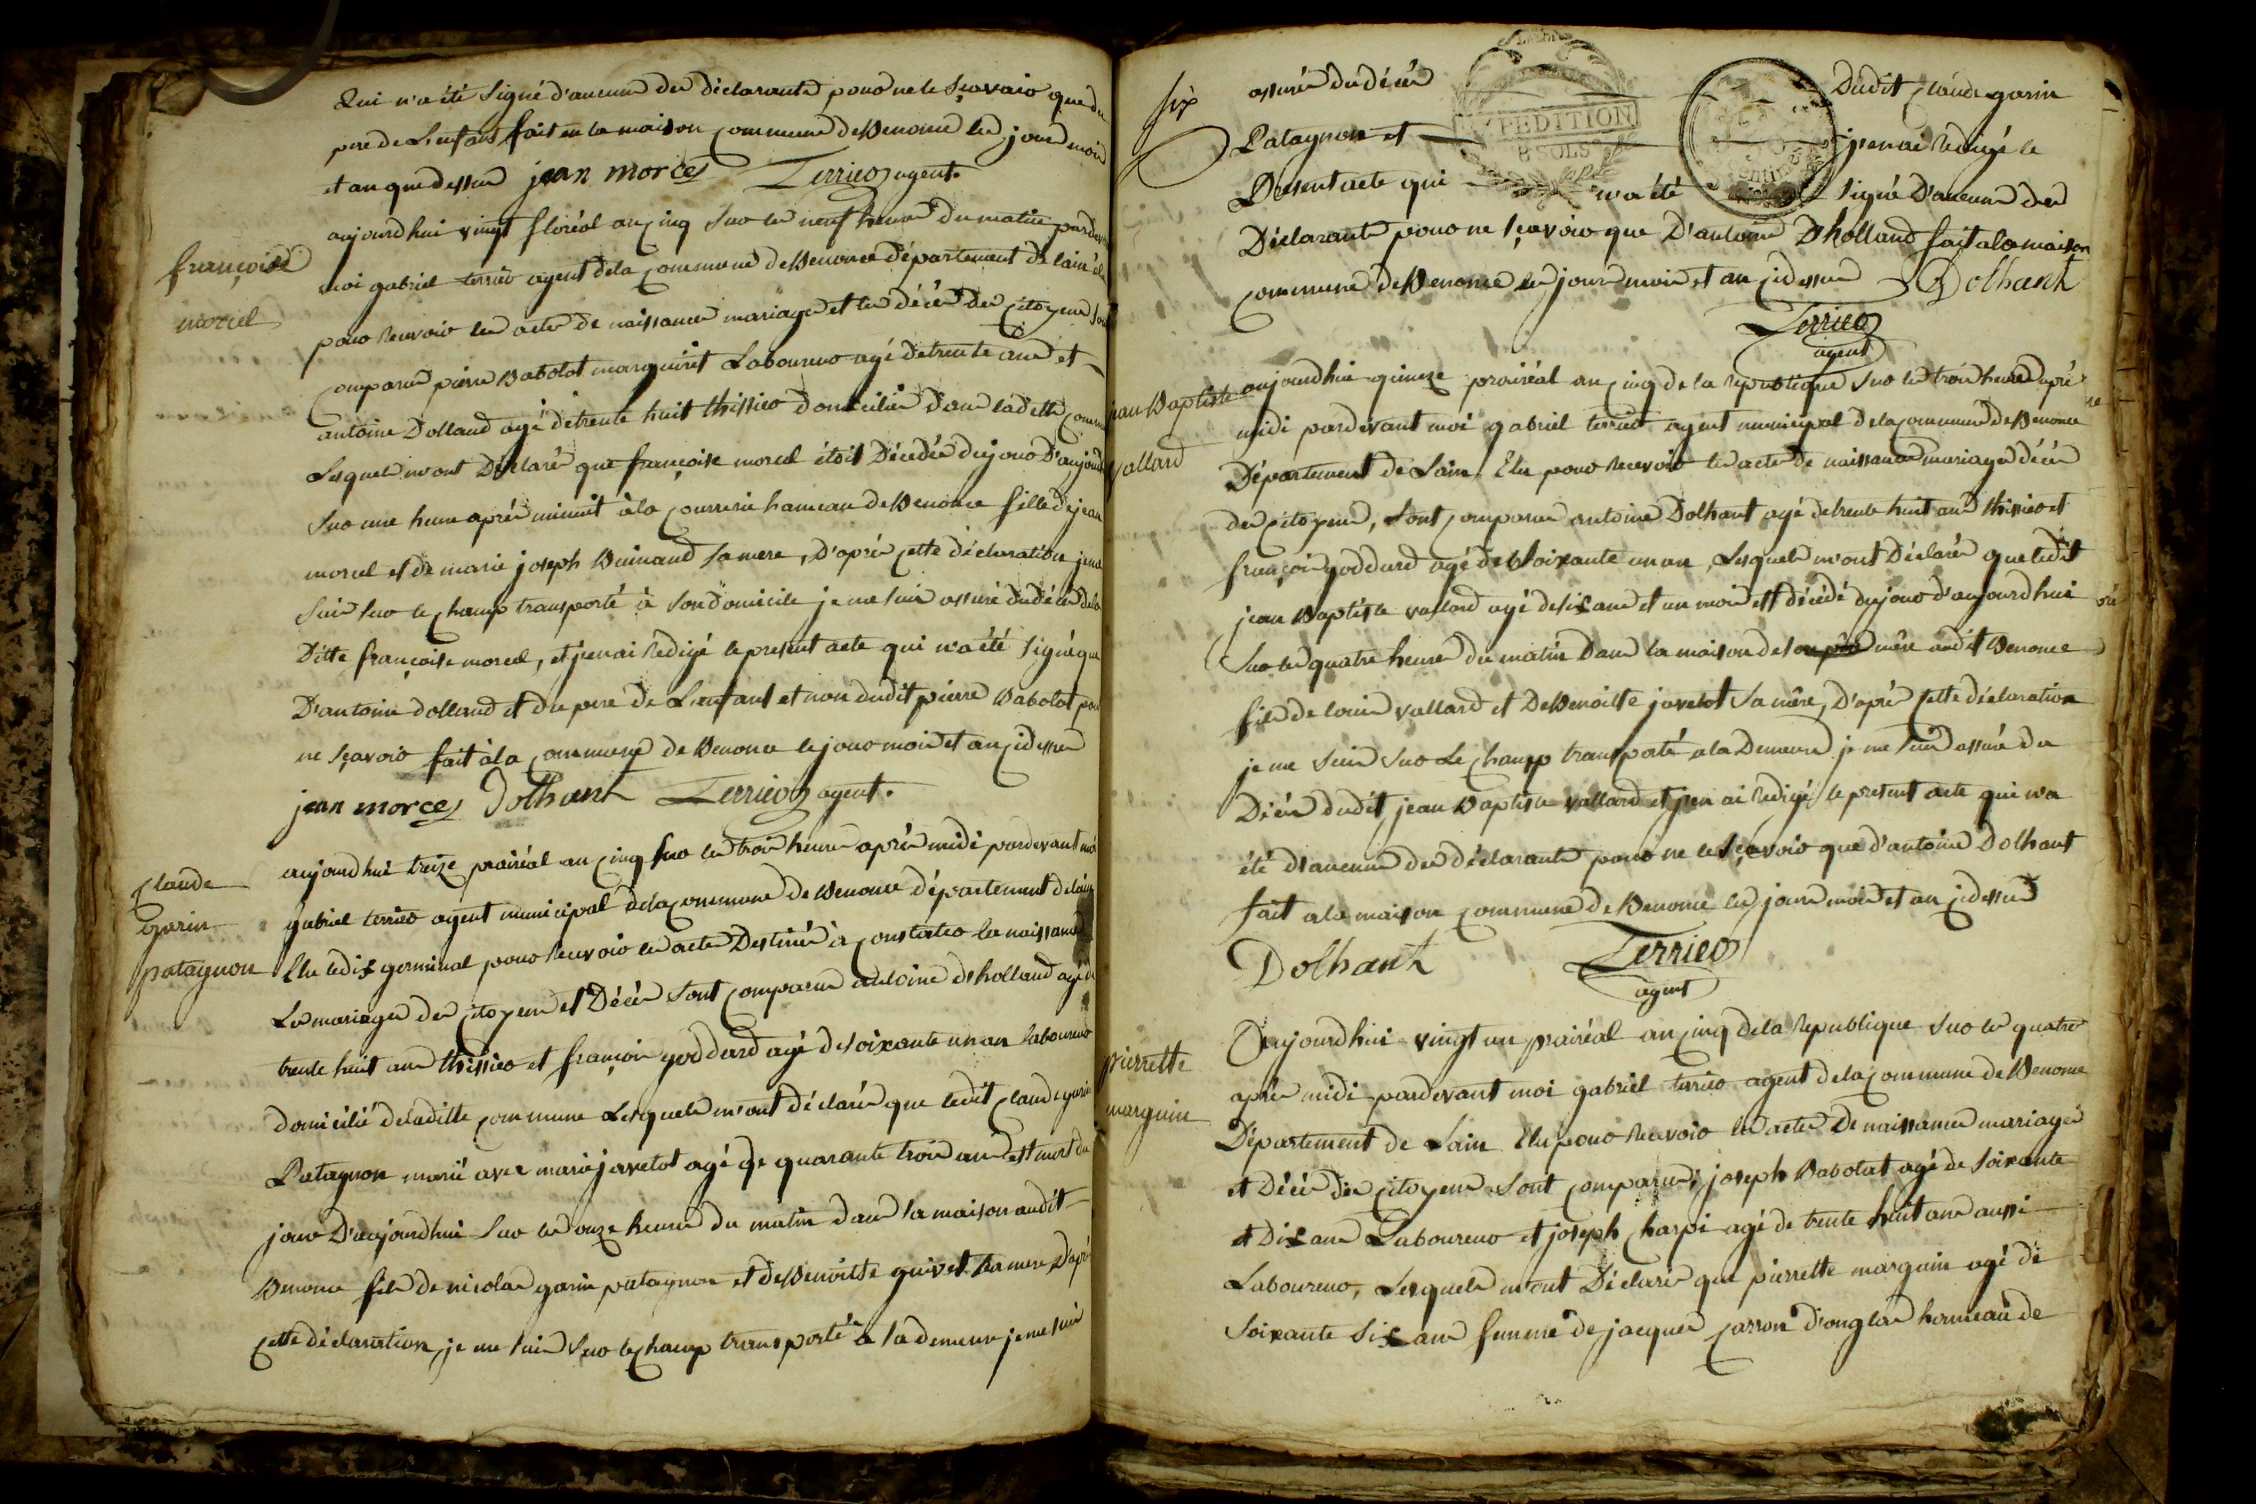 Qui n'a été signé d'aucune des déclarants pour ne le sçavoir que du
pere de L'enfant fait en la maison commune de Benonce les jour mois
et an que dessus jean morcel Terrier agent.
françoise
morcel
aujourd'hui vingt floréal an cinq sur les neuf heures du matin pardev
moi gabriel terrier agent de la commune de Benonce département de lain élu
pour recevoir les actes de naissances mariages et les décès des citoyens sont
comparus pierre Babolat marguiret Laboureur agé de trente ans et
antoine Dolland agé de trente huit thissier domiciliés dans laditte comm
Lesquels m'ont Déclarés que françoise morcel étoit Décédée du jour D'aujourd
sur une heure après minuit à la courrerie hameau de Benonce fille de jean
morcel et de marie joseph Buinand sa mere, D'après cette déclaration je me
suis sur le champ transporté à son domicile je me suis assuré du décès de la
Ditte françoise morcel, et j'en ai rédigé le present acte qui n'a été signé que
D'antoine dolland et du pere de L'enfant et non dudit pierre Babolat pour
ne sçavoir fait à la commune de Benonce le jour mois et an cidessus
jean morcel Dolhant Terrier agent.
Claude
garin
patagnon
aujourd'hui treize prairéal an cinq sur les trois heures après midi pardevant moi
gabriel terrier agent municipal de la commune de Benonce département de lain
Elu le dix germinal pour recevoir les actes Destinés à constater les naissances
Les mariages des citoyens et Décès sont comparus antoine dholland agé de
trente huit ans thissier et françois goddard agé de soixante un an laboureur
domicilié de laditte commune Lesquels m'ont déclarés que ledit claude garin
Patagnon marié avec marie javelot agé de quarante trois ans est mort du
jour D'aujourdhui sur les onze heures du matin dans sa maison audit
Benonce fils de nicolas garin patagnon et de Benoitte guivet sa mere D'après
cette déclaration, je me suis sur le champ transporté à sa demeure je me suis
six
assuré du décès Dudit claude garin
Patagnon et j'en ai rédigé le
EXPEDITION
8 SOLS
Present acte qui n'a été signé D'aucun des
Déclarants pour ne sçavoir que D'antoine Dholland fait a la maison
commune de Benonce les jour mois et an cidessus Dolhant
Terrier
agent
jean Baptiste
vallard
aujourdhui quinze prairéal an cinq de la republique sur les trois heures après
midi pardevant moi gabriel terrier agent municipal de la commune de Benonce
Département de Lain Elu pour recevoir les actes de naissances mariages décès
des citoyens, sont comparus antoine Dolhant agé de trente huit ans thissier et
françois goddard agé de soixante un an, Lesquels m'ont Déclarés que ledit
jean Baptiste vallard agé de six ans et un mois est décédé du jour d'aujourdhui
sur les quatre heures du matin Dans la maison de son père mère audit Benonce
fils de louis vallard et de Benoitte javelot sa mère, D'après cette déclaration
je me suis sur Le champ transporté a la Demeure je me suis assuré du
Décès dudit jean Baptiste vallard et j'en ai rédigé le present acte qui n'a
été d'aucun des déclarants pour ne le sçavoir que d'antoine Dolhant
fait a la maison commune de Benonce les jour mois et an cidessus
Dolhant Terrier
agent
pierrette
marguin
aujourdhui vingt un prairéal an cinq de la republique sur les quatre
après midi pardevant moi gabriel terrier agent de la commune de Benonce
Département de Lain Elu pour recevoir les actes De naissances mariages
et Décès des citoyens sont comparus joseph Babolat agé de soixante
et Dix ans Laboureur et joseph charpi agé de trente huit ans aussi
Laboureur, Lesquels m'ont Déclarés que pierrette marguin agé de
soixante six ans femme de jacques carron d'onglas hameau de